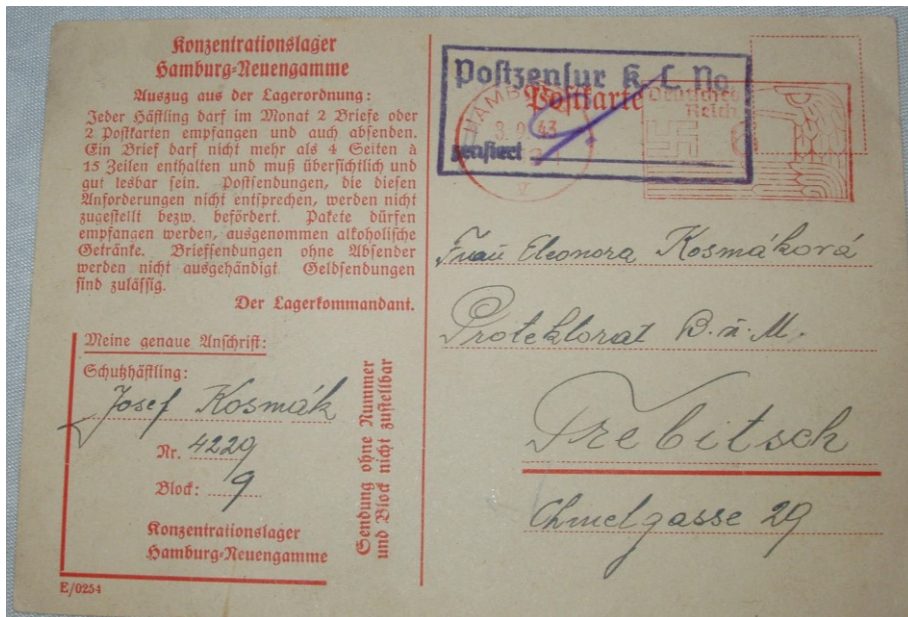 Konzentrationslager
Hamburg-Neuengamme
Auszug aus der Lagerordnung:
Jeder Häftling darf im Monat 2 Briefe oder
2 Postkarten empfangen und auch absenden.
Ein Brief darf nicht mehr als 4 Seiten à
15 Zeilen enthalten und muß übersichtlich und
gut lesbar sein. Postsendungen, die diesen
Anforderungen nicht entsprechen, werden nicht
zugestellt bezw. befördert. Pakete dürfen
empfangen werden, ausgenommen alkoholische
Getränke. Briefsendungen ohne Absender
werden nicht ausgehändigt. Geldsendungen
sind zulässig.
Der Lagerkommandant.
Meine genaue Anschrift:
Schutzhäftling:
Josef Kosmák
Nr. 4229
Block: 9
Konzentrationslager
Hamburg-Neuengamme
Sendung ohne Nummer
und Block nicht zustellbar
E/0254
Postzensur K. L. Na
Postkarte
zensiert
HAMBURG
3.9.43
Deutsches
Reich
Frau Eleonora Kosmáková
Protektorat B. u. M.
Trebitsch
Chmelgasse 29